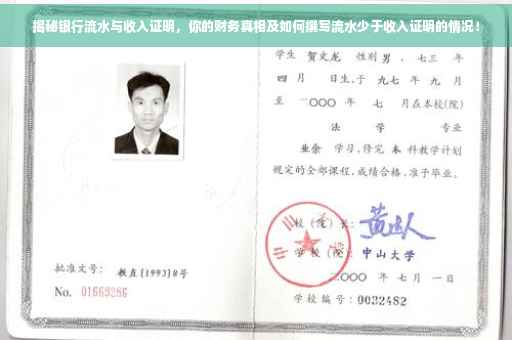 揭秘银行流水与收入证明，你的财务真相及如何撰写流水少于收入证明的情况！
学生 贺文龙 性别 男 、七三 年
四 月 日生,于 九七 年 九 月
至 二〇〇〇 年 七 月在本校(院)
法 学 专业
业余 学习,修完 本 科教学计划
规定的全部课程,成绩合格,准予毕业。
校（院）长：
学 校（院）：中山大学
二〇〇〇 年 七 月 一 日
学校编号：0032482
批准文号： 教直[1993]8号
No. 01669286